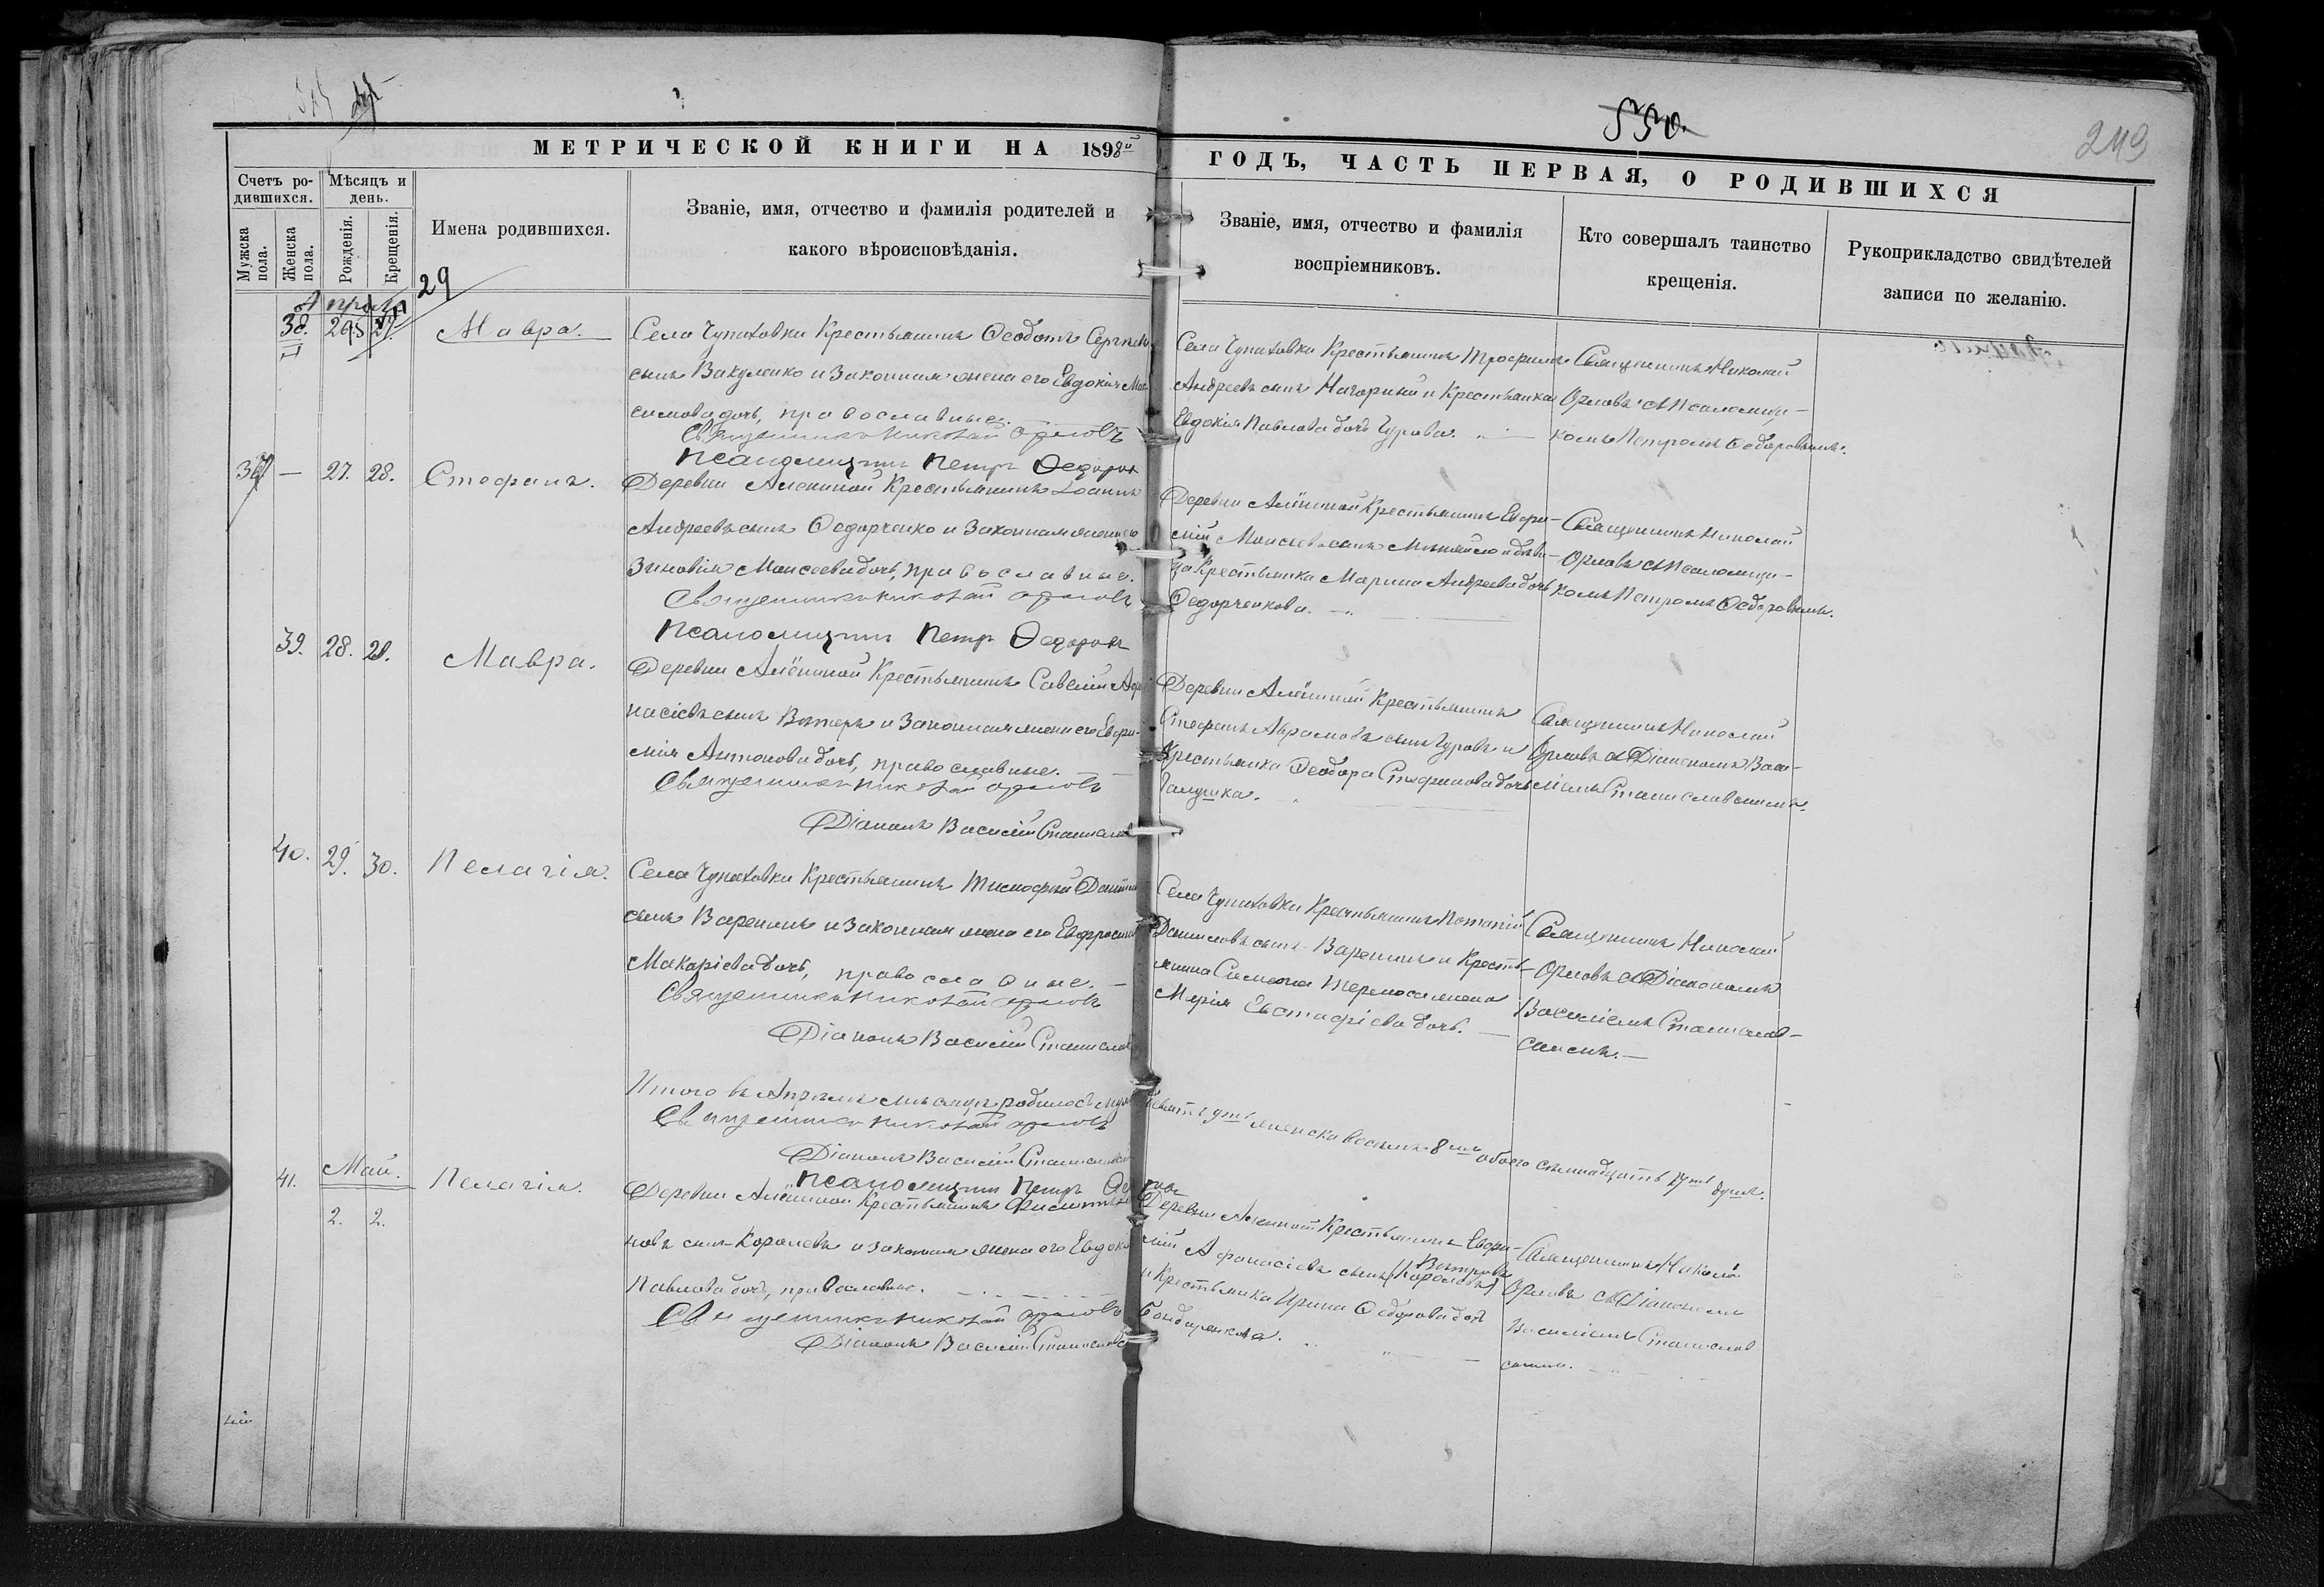 550.
249
МЕТРИЧЕСКОЙ КНИГИ НА 1898й
ГОДЪ, ЧАСТЬ ПЕРВАЯ, О РОДИВШИХСЯ
Счетъ ро-
дившихся.
Мужска
пола.
Женска
пола.
Мѣсяцъ и
день.
Рожденія.
Крещенія.
Имена родившихся.
Званіе, имя, отчество и фамилія родителей и
какого вѣроисповѣданія.
Званіе, имя, отчество и фамилія
воспріемниковъ.
Кто совершалъ таинство
крещенія.
Рукоприкладство свидѣтелей
записи по желанію.
29
Апрѣль
38.
Мавра.
Села Чупаховки Крестьянинъ Ѳеодотъ Сергѣевъ
сынъ Вакуленко и Законная жена его Евдокія Мак-
симова дочь, православные.
Священникъ Николай Орловъ
Псаломщикъ Петръ Ѳедоровъ
Села Чупаховки Крестьянинъ Трофимъ
Андреевъ сынъ Нагорный и Крестьянка
Евдокія Павлова дочь Гурова.
Священникъ Николай
Орловъ съ Псаломщи-
комъ Петромъ Ѳедоровымъ.
27. 28.
Стефанъ.
Деревни Алешиной Крестьянинъ Іоаннъ
Андреевъ сынъ Ѳедорченко и Законная жена его
Зиновія Моисеева дочь, православные.
Священникъ Николай Орловъ
Псаломщикъ Петръ Ѳедоровъ
Деревни Алёшиной Крестьянинъ Евфи-
мій Моисеевъ сынъ и дѣви-
ца Крестьянка Марина Андреева дочь
Ѳедорченкова.
Священникъ Николай
Орловъ съ Псаломщи-
комъ Петромъ Ѳедоровымъ.
39. 28. 29.
Мавра.
Деревни Алёшиной Крестьянинъ Савелій Афа-
насіевъ сынъ и Законная жена его Евфи-
мія Антонова дочь, православные.
Священникъ Николай Орловъ
Діаконъ Василій Станиславскій
Деревни Алёшиной Крестьянинъ
Стефанъ Аврамовъ сынъ Гуровъ и
Крестьянка Ѳеодора Стефанова дочь
Священникъ Николай
Орловъ съ Діакономъ Васи-
ліемъ Станиславскимъ.
40. 29. 30.
Пелагія.
Села Чупаховки Крестьянинъ Тимофей Даниловъ
сынъ Варенинъ и Законная жена его Евфросинія
Макаріева дочь, православные.
Священникъ Николай Орловъ
Діаконъ Василій Станиславскій
Села Чупаховки Крестьянинъ Потапій
Даниловъ сынъ Варенинъ и Кресть-
янина Симеона жена
Марія Евстафіева дочь.
Священникъ Николай
Орловъ съ Діакономъ
Василіемъ Станислав-
скимъ.
Итого въ Апрѣлѣ мѣсяцѣ родилось муж. девять 9ть женска восемь 8мь обоего семнадцать 17ть душъ.
Священникъ Николай Орловъ
Діаконъ Василій Станиславскій
Псаломщикъ Петръ Ѳедоровъ
Май.
41.
2. 2.
Пелагія.
Деревни Алёшиной Крестьянинъ
новъ сынъ Королевъ и законная жена его Евдокія
Павлова дочь, православные.
Священникъ Николай Орловъ
Діаконъ Василій Станиславскій
Деревни Алешиной Крестьянинъ Евфи-
мій Афанасіевъ сынъ (Королевъ)
и Крестьянка Ирина Ѳедорова дочь
Бондаренкова.
Священникъ Николай
Орловъ съ Діакономъ
Василіемъ Станислав
скимъ.